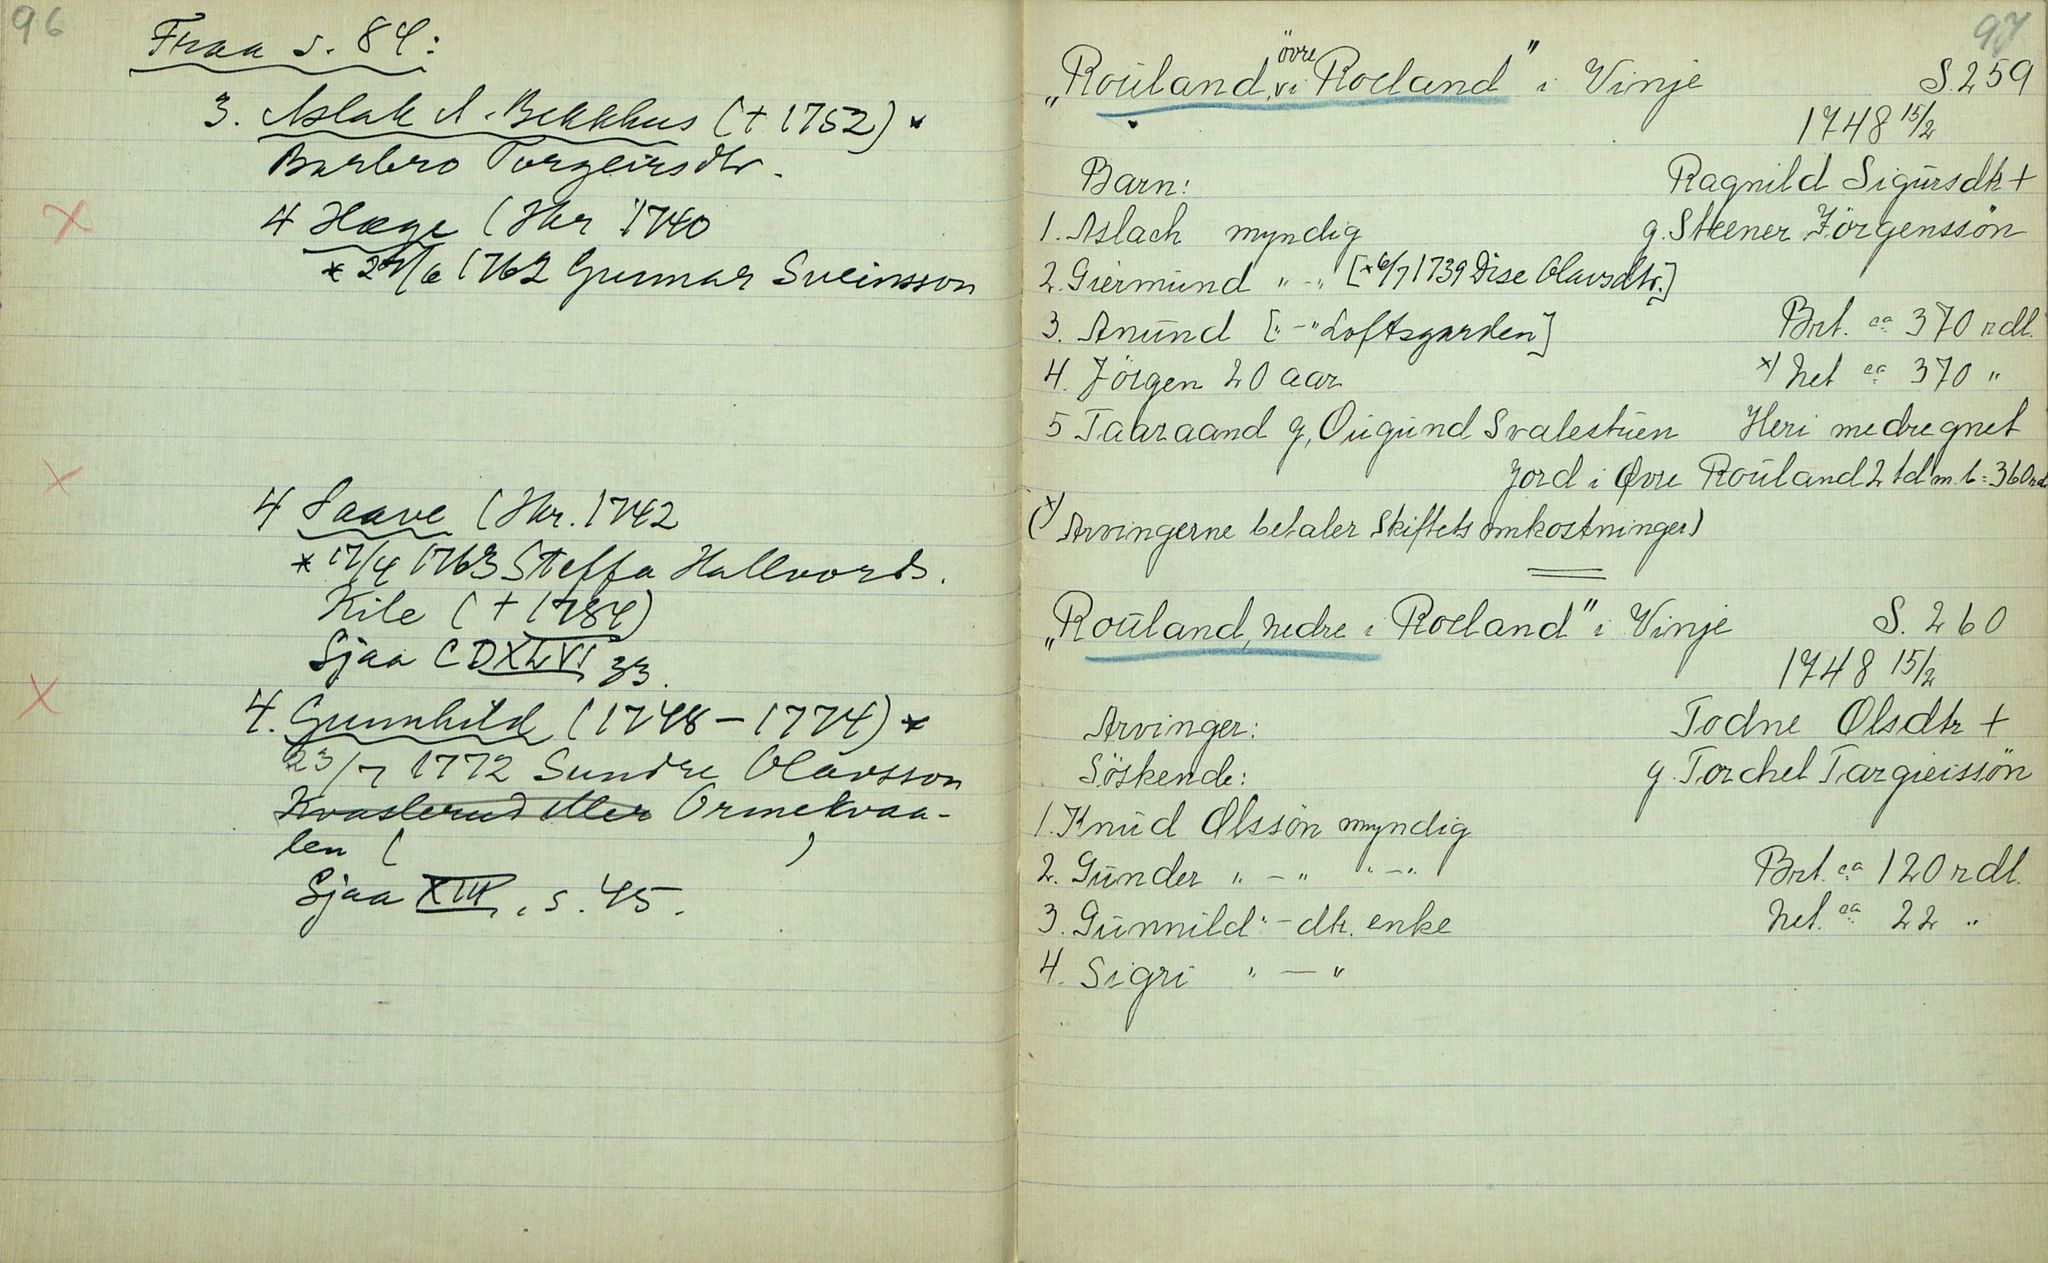 96
Fraa s. 84:
3. Aslak A. Bekkhus (+ 1752) *
Barbro Torgeirsdtr.
4 Hæge (Hkr 1740
* 27/6 1762 Gunnar Sveinsson
4 Saave (Hkr. 1742
* 17/4 1763 Steffa Hallvords.
Kile (+ 1784)
Sjaa CDXLVI 33.
4. Gunnhild (1748 - 1774) *
23/7 1772 Sundre Olavsson
Kvaslerud eller Ormekvaa-
len (                    )
Sjaa XIII, s. 45.
97
„Rouland, övre i Roeland" i Vinje S. 259
1748 15/2
Barn: Ragnild Sigursdtr +
1. Aslach myndig g. Steener Jörgenssön
2. Giermund " - " [* 6/7 1739 Dise Olavsdtr.]
3. Anund [" - " Loftsgarden] Brt. ca 370 rdl.
4. Jörgen 20 aar x) Net ca 370 "
5 Taaraand g. Ougund Svalestuen Heri medregnet
Jord i Øvre Rouland 2 td m. b = 360 rd
(x) Arvingerne betaler Skiftets omkostninger)
„Rouland, nedre i Roeland" i Vinje S. 260
1748 15/2
Arvinger: Todne Olsdtr +
Söskende: g. Torchel Targieissön
1. Knud Olssön myndig
2. Gunder " - " " - " Brt. ca 120 rdl.
3. Gunnild " - dtr. enke Net. ca 22 "
4. Sigri " - "